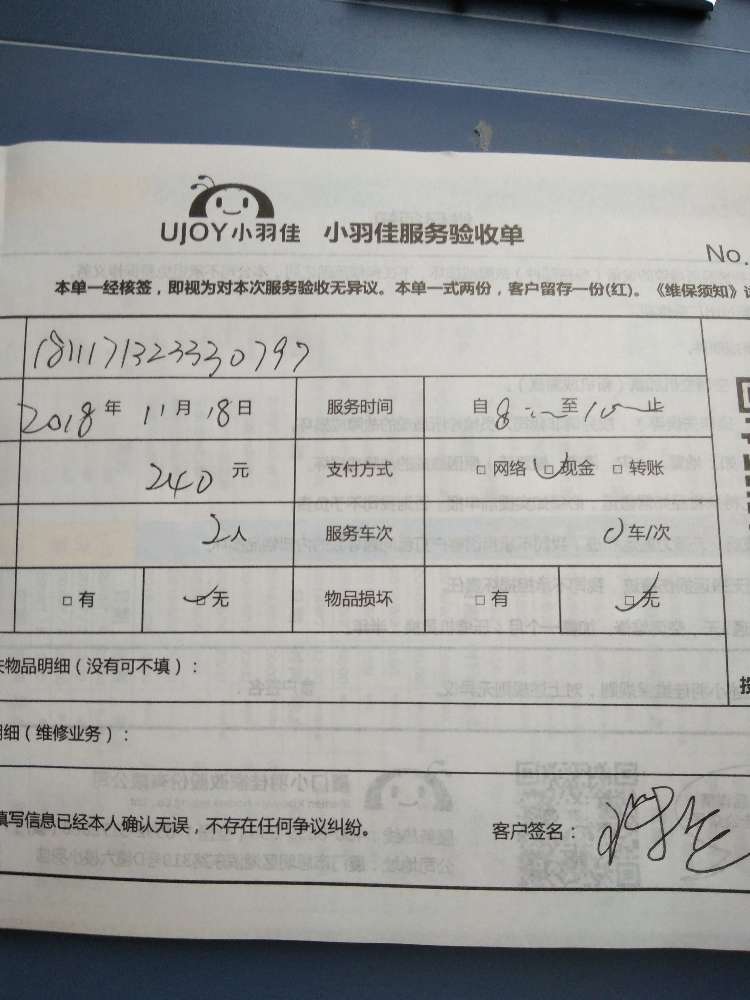 UJOY小羽佳 小羽佳服务验收单
No.
本单一经核签，即视为对本次服务验收无异议。本单一式两份，客户留存一份(红)。《维保须知》
1811171323330797
2018年11月18日 服务时间 自8:00至10:00止
240元 支付方式 □网络 □现金 □转账
2人 服务车次 0车/次
□有 □无 物品损坏 □有 □无
物品明细（没有可不填）：
明细（维修业务）：
填写信息已经本人确认无误，不存在任何争议纠纷。 客户签名：